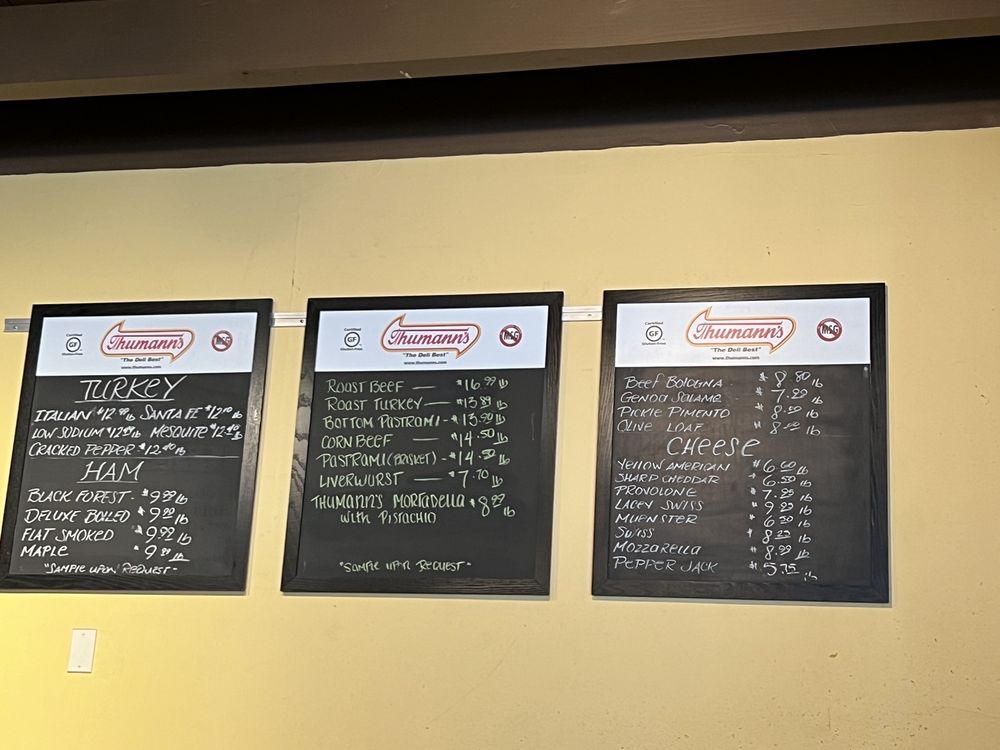 Certified
GF
Gluten-Free
Thumann's
"The Deli Best"
www.thumanns.com
MSG
TURKEY
ITALIAN $12.99 lb SANTA FE $12.99 lb
LOW SODIUM $12.99 lb MESQUITE $12.99 lb
CRACKED PEPPER $12.99 lb
HAM
BLACK FOREST - $9.99 lb
DELUXE BOILED $9.99 lb
FLAT SMOKED $9.99 lb
MAPLE $9.99 lb
"SAMPLE UPON REQUEST"
Certified
GF
Gluten-Free
Thumann's
"The Deli Best"
www.thumanns.com
MSG
ROAST BEEF — $16.99 lb
ROAST TURKEY — $13.99 lb
BOTTOM PASTRAMI - $13.90 lb
CORN BEEF — $14.50 lb
PASTRAMI (BRISKET) - $14.50 lb
LIVERWURST — $7.70 lb
THUMANN'S MORTADELLA $8.99 lb
with PISTACHIO
"SAMPLE UPON REQUEST"
Certified
GF
Gluten-Free
Thumann's
"The Deli Best"
www.thumanns.com
MSG
BEEF BOLOGNA $8.80 lb
GENOA SALAME $7.99 lb
PICKLE PIMENTO lb
OLIVE LOAF lb
CHEESE
YELLOW AMERICAN lb
SHARP CHEDDAR $6.50 lb
PROVOLONE lb
LACEY SWISS lb
MUENSTER lb
SWISS lb
MOZZARELLA $8.99 lb
PEPPER JACK $5.75 lb